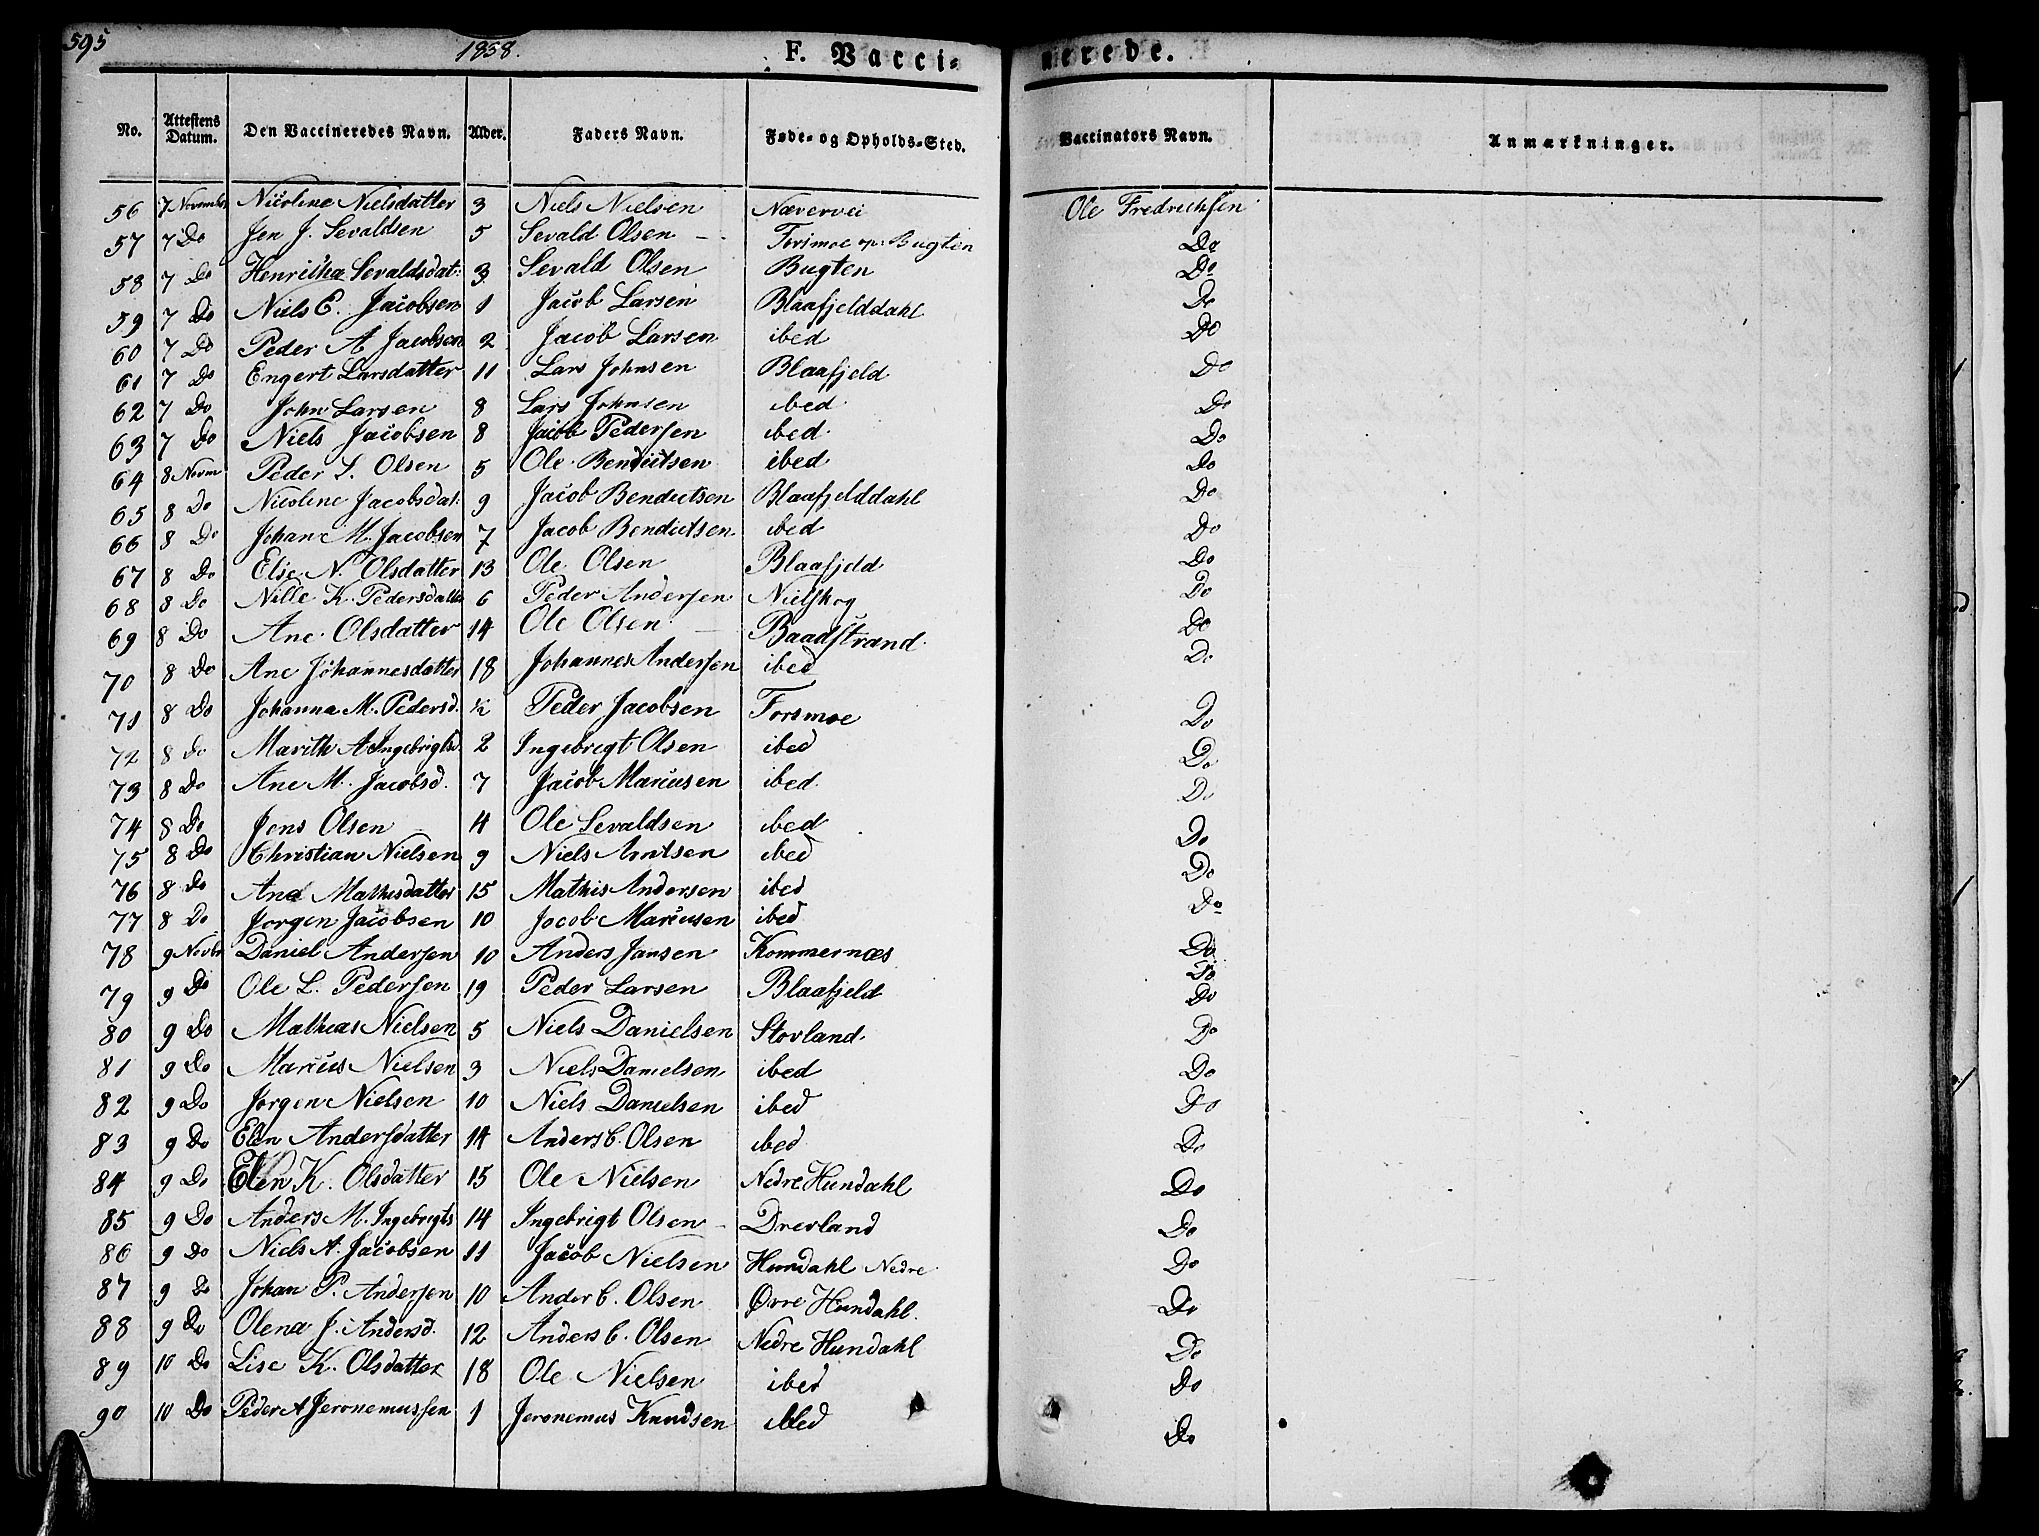 595 1838. F. Vaccinerede.
No. Attestens Datum. Den Vaccineredes Navn. Alder. Faders Navn. Føde- og Opholds-Sted. Vaccinators Navn. Anmærkninger.
56 7 Novembr Nicoline Nielsdatter 3 Niels Nielsen Nævervei Ole Fredrichsen
57 7 Do Jen J. Sevaldsen 5 Sevald Olsen Forsmoe op: Bugten Do
58 7 Do Henricha Sevaldsdat: 3 Sevald Olsen Bugten Do
59 7 Do Niels E. Jacobsen 1 Jacob Larsen Blaafjelddahl Do
60 7 Do Peder A Jacobsen 2 Jacob Larsen ibed Do
61 7 Do Engert Larsdatter 11 Lars Johnsen Blaafjeld Do
62 7 Do John Larsen 8 Lars Johnsen ibed Do
63 7 Do Niels Jacobsen 8 Jacob Pedersen ibed Do
64 8 Novm Peder L. Olsen 5 Ole Bendictsen ibed Do
65 8 Do Nicoline Jacobsdat: 9 Jacob Bendictsen Blaafjelddahl Do
66 8 Do Johan M. Jacobsen 7 Jacob Bendictsen ibed Do
67 8 Do Elie N. Olsdatter 13 Ole Olsen Blaafjeld Do
68 8 Do Nille K. Pedersdatter 6 Peder Andersen Nielskog Do
69 8 Do Ane Olsdatter 14 Ole Olsen Baadstrand Do
70 8 Do Ane Johannesdatter 18 Johannes Andersen ibed Do
71 8 Do Johanna M. Pedersd. ½ Peder Jacobsen Forsmoe Do
72 8 Do Marith A Ingebrigtsd. 2 Ingebregt Olsen ibed Do
73 8 Do Ane M. Jacobsd. 7 Jacob Marcusen ibed Do
74 8 Do Jens Olsen 4 Ole Sevaldsen ibed Do
75 8 Do Christian Nielsen 9 Niels Arntsen ibed Do
76 8 Do Ane Mathisdatter 15 Mathis Andersen ibed Do
77 8 Do Jørgen Jacobsen 10 Jacob Marcusen ibed Do
78 9 Novbr Daniel Andersen 10 Anders Jansen Kommernæs Do
79 9 Do Ole L. Pedersen 19 Peder Larsen Blaafjeld Do Do
80 9 Do Mathias Nielsen 5 Niels Danielsen Storland Do
81 9 Do Marcus Nielsen 3 Niels Danielsen ibed Do
82 9 Do Jørgen Nielsen 10 Niels Danielsen ibed Do
83 9 Do Elen Andersdatter 14 Anders C. Olsen ibed Do
84 9 Do Elen K. Olsdatter 15 Ole Nielsen Nedre Hundahl Do
85 9 Do Anders M. Ingebrigts 14 Ingebrigt Olsen Drevland Do
86 9 Do Niels A. Jacobsen 11 Jacob Nielsen Hundahl Nedre Do
87 9 Do Johan P. Andersen 10 Ander C. Olsen Øvre Hundahl. Do
88 9 Do Olena J. Andersd. 12 Anders C. Olsen Nedre Hundahl Do
89 10 Do Lise K. Olsdatter 18 Ole Nielsen ibed Do
90 10 Do Peder A Jeronemussen 1 Jeronemus Knudsen ibed Do